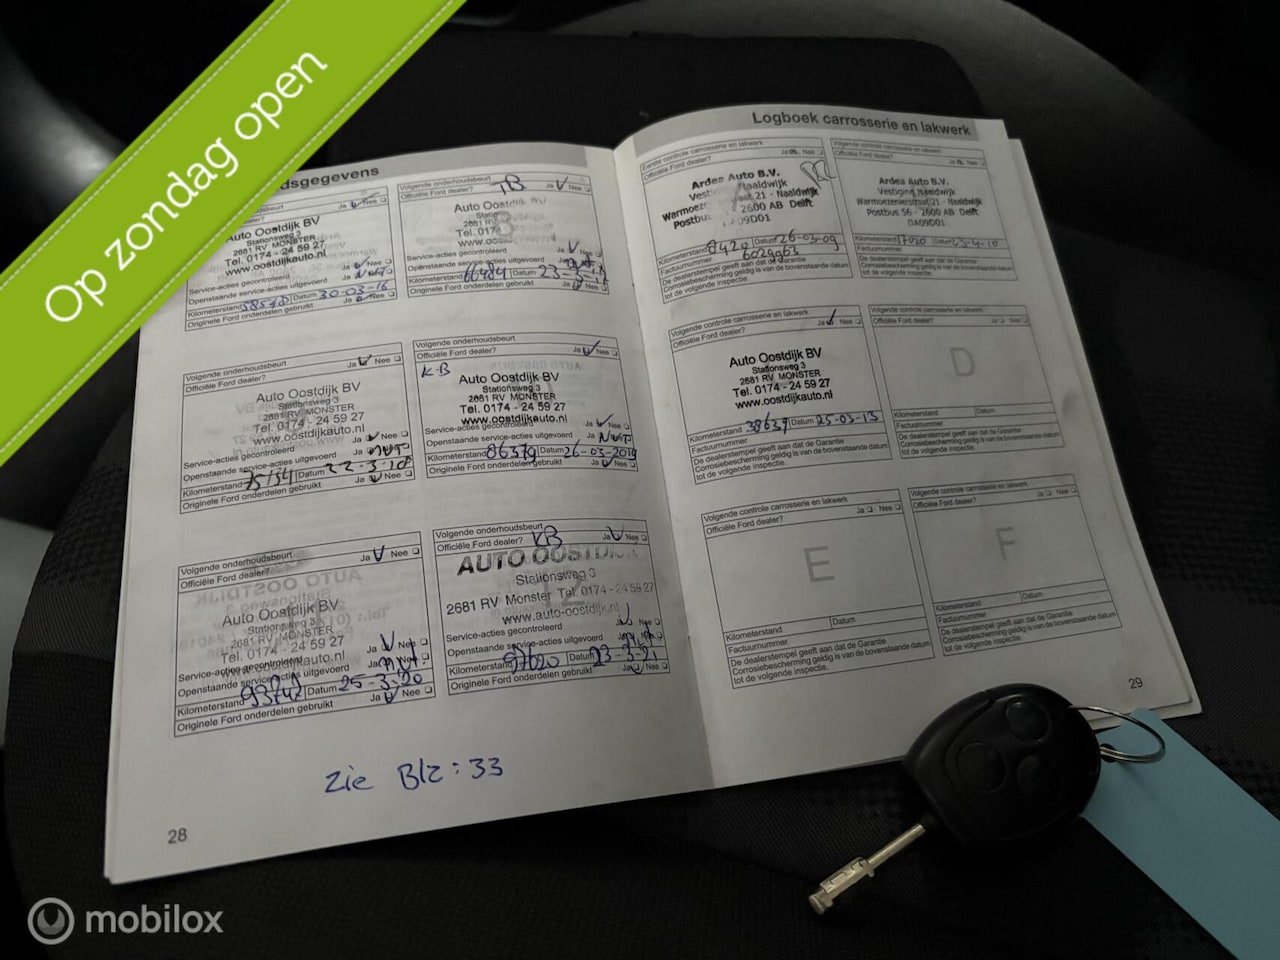 Op zondag open
dsgegevens
Auto Oostdijk BV
Stationsweg 3
2681 RV MONSTER
Tel. 0174 - 24 59 27
www.oostdijkauto.nl
Service-acties gecontroleerd
Openstaande service-acties uitgevoerd
Kilometerstand 58548 Datum 30-03-16
Originele Ford onderdelen gebruikt Ja Nee
Volgende onderhoudsbeurt
Officiële Ford dealer? Ja Nee
Auto Oostdijk
2681 RV
Tel. 0174
Service-acties gecontroleerd
Openstaande service-acties uitgevoerd
Kilometerstand 66484 Datum
Originele Ford onderdelen gebruikt Ja Nee
Volgende onderhoudsbeurt
Officiële Ford dealer? Ja Nee
Auto Oostdijk BV
Stationsweg 3
2681 RV MONSTER
Tel. 0174 - 24 59 27
www.oostdijkauto.nl
Service-acties gecontroleerd
Openstaande service-acties uitgevoerd
Kilometerstand 75134 Datum 22-3-18
Originele Ford onderdelen gebruikt Ja Nee
Volgende onderhoudsbeurt
Officiële Ford dealer? Ja Nee
KB
Auto Oostdijk BV
Stationsweg 3
2681 RV MONSTER
Tel. 0174 - 24 59 27
www.oostdijkauto.nl
Service-acties gecontroleerd
Openstaande service-acties uitgevoerd NVT
Kilometerstand 86379 Datum 26-03-2019
Originele Ford onderdelen gebruikt Ja Nee
Volgende onderhoudsbeurt
Officiële Ford dealer? Ja Nee
Auto Oostdijk BV
Stationsweg 3
2681 RV MONSTER
Tel. 0174 - 24 59 27
www.oostdijkauto.nl
Service-acties gecontroleerd
Openstaande service-acties uitgevoerd
Kilometerstand Datum 25-3-20
Originele Ford onderdelen gebruikt Ja Nee
Volgende onderhoudsbeurt
Officiële Ford dealer? KB Ja Nee
AUTO OOSTDIJK
12
Stationsweg 3
2681 RV Monster Tel. 0174 - 24 59 27
www.auto-oostdijk.nl
Service-acties gecontroleerd
Openstaande service-acties uitgevoerd
Kilometerstand 97020 Datum 23-3-21
Originele Ford onderdelen gebruikt Ja Nee
Zie Blz: 33
28
Logboek carrosserie en lakwerk
Eerste controle carrosserie en lakwerk
Officiële Ford dealer? Ja Nee
A
Ardea Auto B.V.
Naaldwijk
21 - Naaldwijk
2600 AB Delft
Kilometerstand 8420 Datum 26-03-09
Factuurnummer 6029963
De dealerstempel geeft aan dat de Garantie
Corrosiebescherming geldig is van de bovenstaande datum
tot de volgende inspectie.
Volgende controle carrosserie en lakwerk
Officiële Ford dealer? Ja Nee
Ardea Auto B.V.
Vestiging Naaldwijk
Warmoezenierstraat 21 - Naaldwijk
Postbus 56 - 2600 AB Delft
DA09D01
Kilometerstand 17020 Datum
Factuurnummer
De dealerstempel geeft aan dat de Garantie
Corrosiebescherming geldig is van de bovenstaande datum
tot de volgende inspectie.
Volgende controle carrosserie en lakwerk
Officiële Ford dealer? Ja Nee
Auto Oostdijk BV
Stationsweg 3
2681 RV MONSTER
Tel. 0174 - 24 59 27
www.oostdijkauto.nl
Kilometerstand 38637 Datum 25-03-13
Factuurnummer
De dealerstempel geeft aan dat de Garantie
Corrosiebescherming geldig is van de bovenstaande datum
tot de volgende inspectie.
Volgende controle carrosserie en lakwerk
Officiële Ford dealer? Ja Nee
D
Kilometerstand Datum
Factuurnummer
De dealerstempel geeft aan dat de Garantie
Corrosiebescherming geldig is van de bovenstaande datum
tot de volgende inspectie.
Volgende controle carrosserie en lakwerk
Officiële Ford dealer? Ja Nee
E
Kilometerstand Datum
Factuurnummer
De dealerstempel geeft aan dat de Garantie
Corrosiebescherming geldig is van de bovenstaande datum
tot de volgende inspectie.
Volgende controle carrosserie en lakwerk
Officiële Ford dealer? Ja Nee
F
Kilometerstand Datum
Factuurnummer
De dealerstempel geeft aan dat de Garantie
Corrosiebescherming geldig is van de bovenstaande datum
tot de volgende inspectie.
29
mobilox